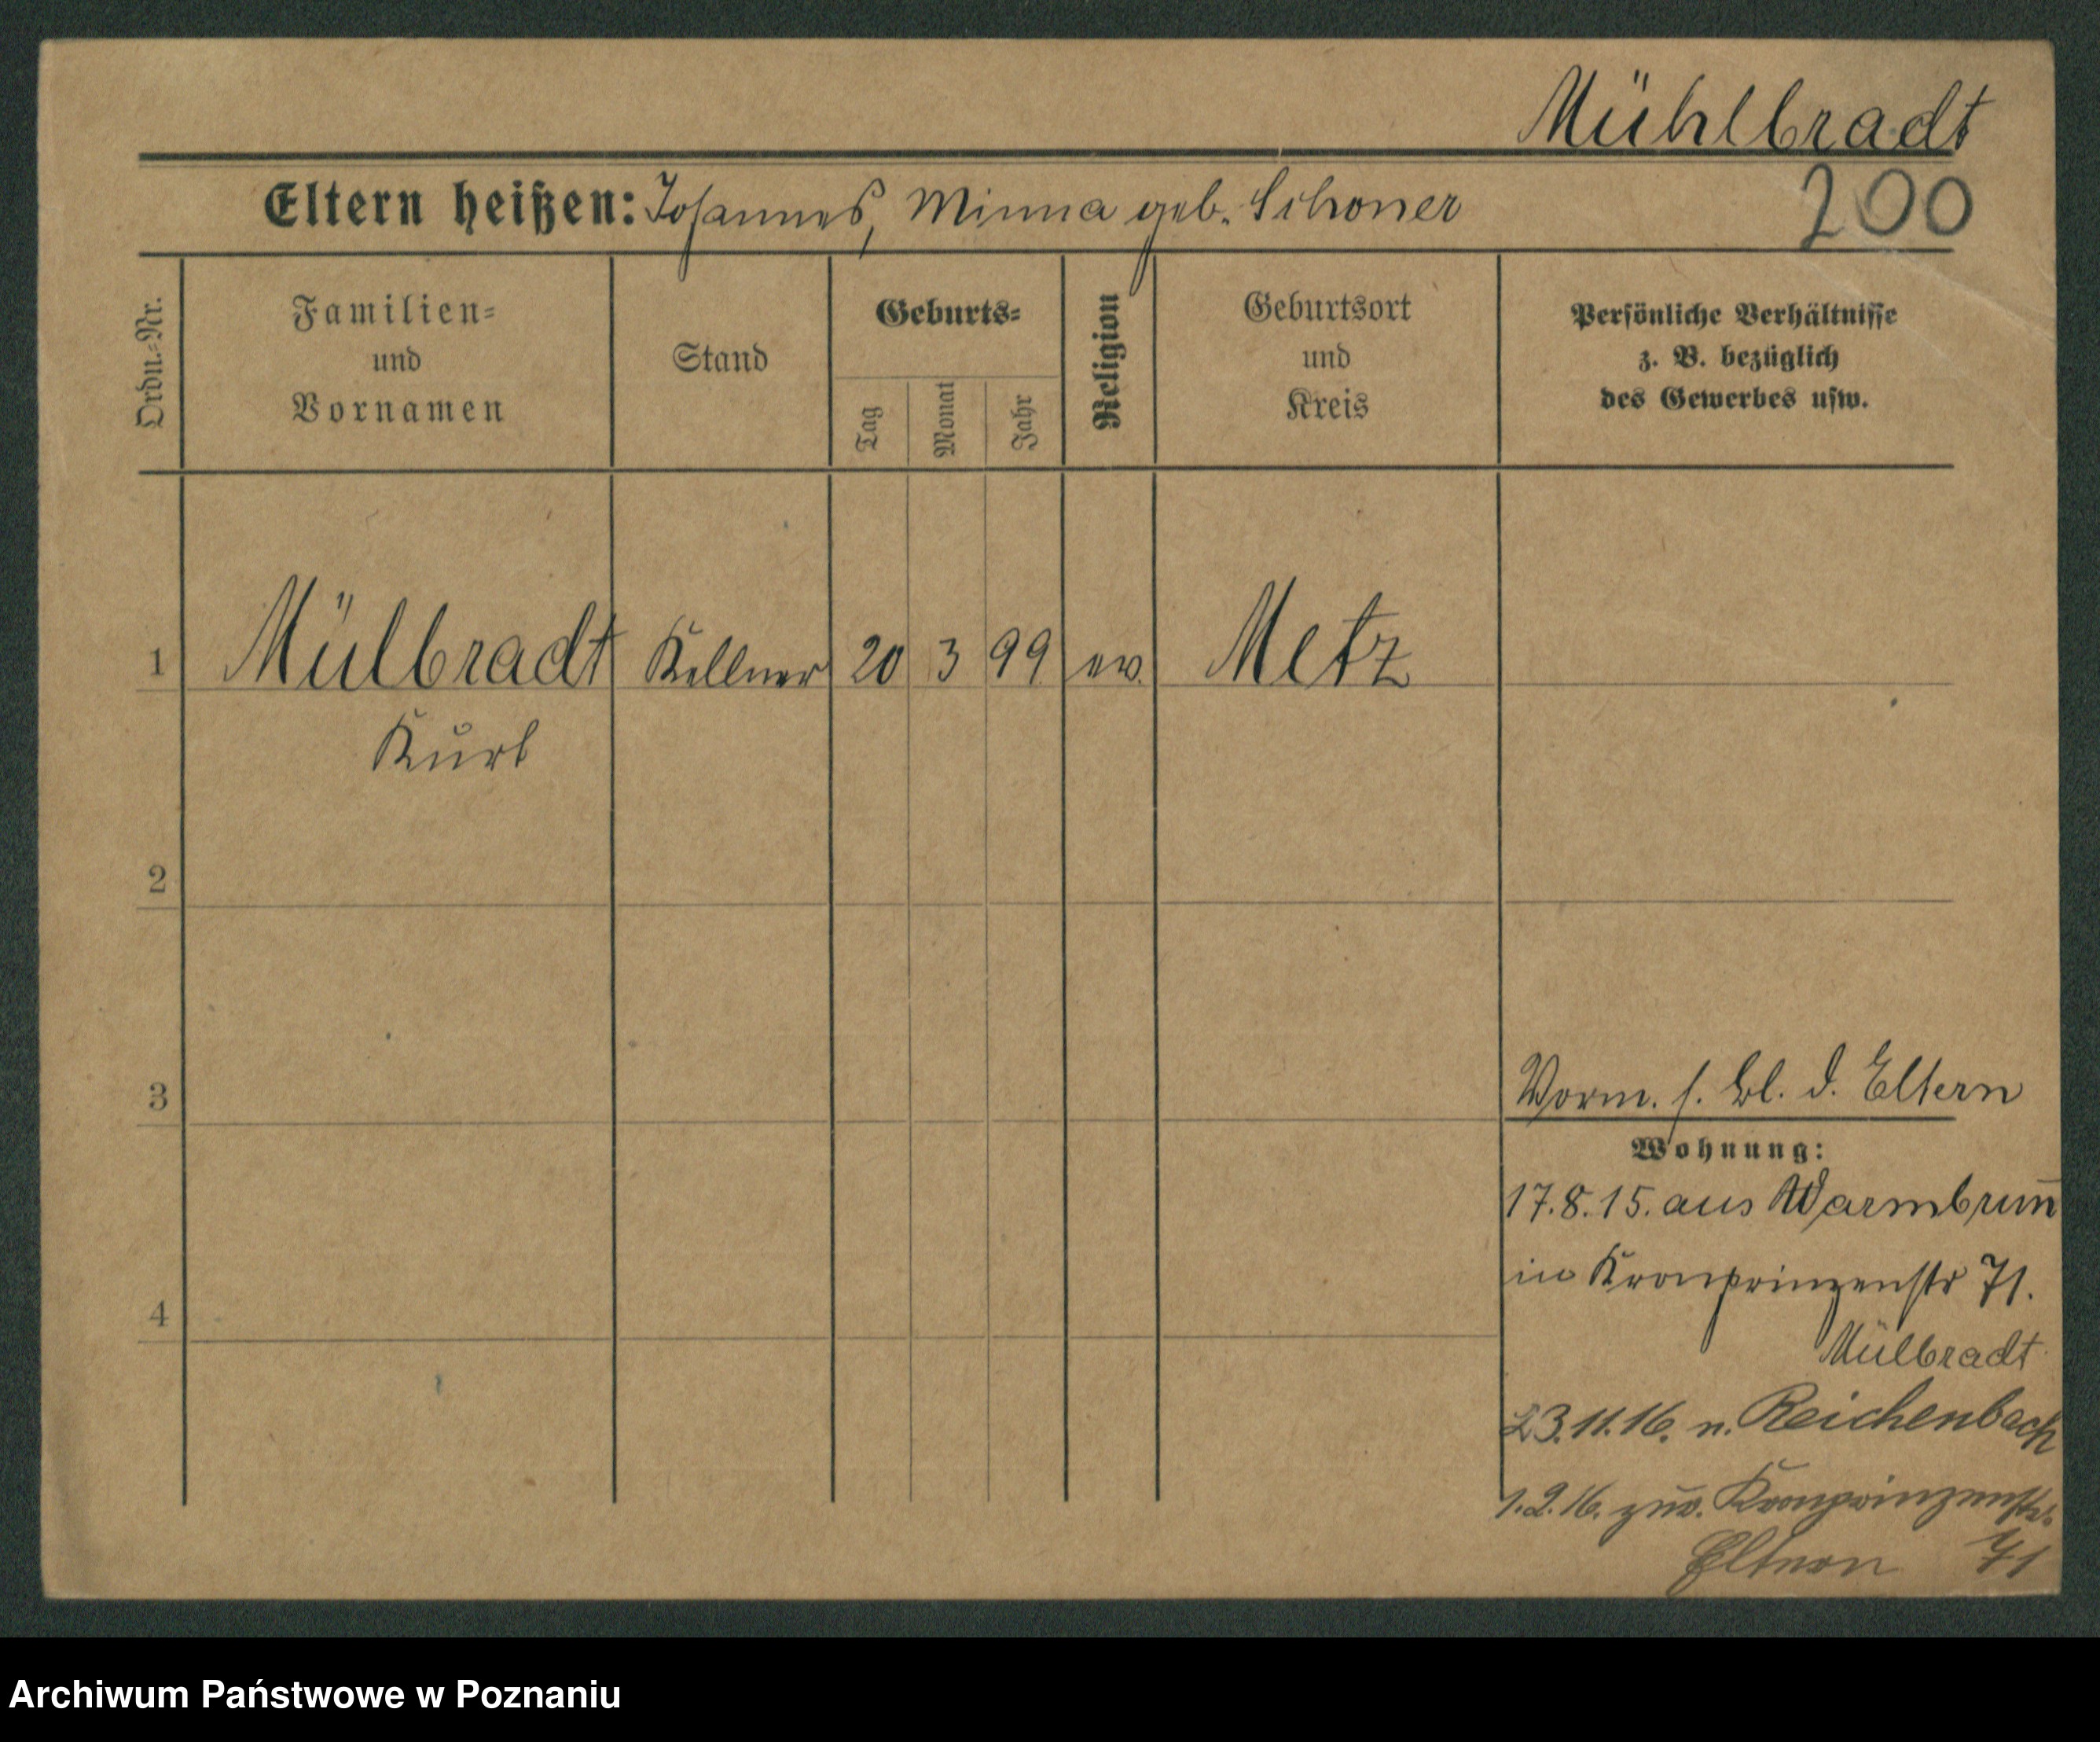 Mühlbradt
Eltern heißen: Johannes, Minna geb. Schoner
200
Ordn.-Nr.
Familien-
und
Vornamen
Stand
Geburts-
Tag
Monat
Jahr
Religion
Geburtsort
und
Kreis
Persönliche Verhältnisse
z. B. bezüglich
des Gewerbes usw.
1 Mülbradt Kellner 20 3 99 ev. Metz
Kurt
2
3
Vorm. s. Bl. d. Eltern
Wohnung:
17.8.15. aus Warmbrun̄
in Kronprinzenstr 71.
4
Mülbradt
23.11.16. n. Reichenbach
1.2.16. zur. Kronprinzenstr.
Eltern 71
Archiwum Państwowe w Poznaniu